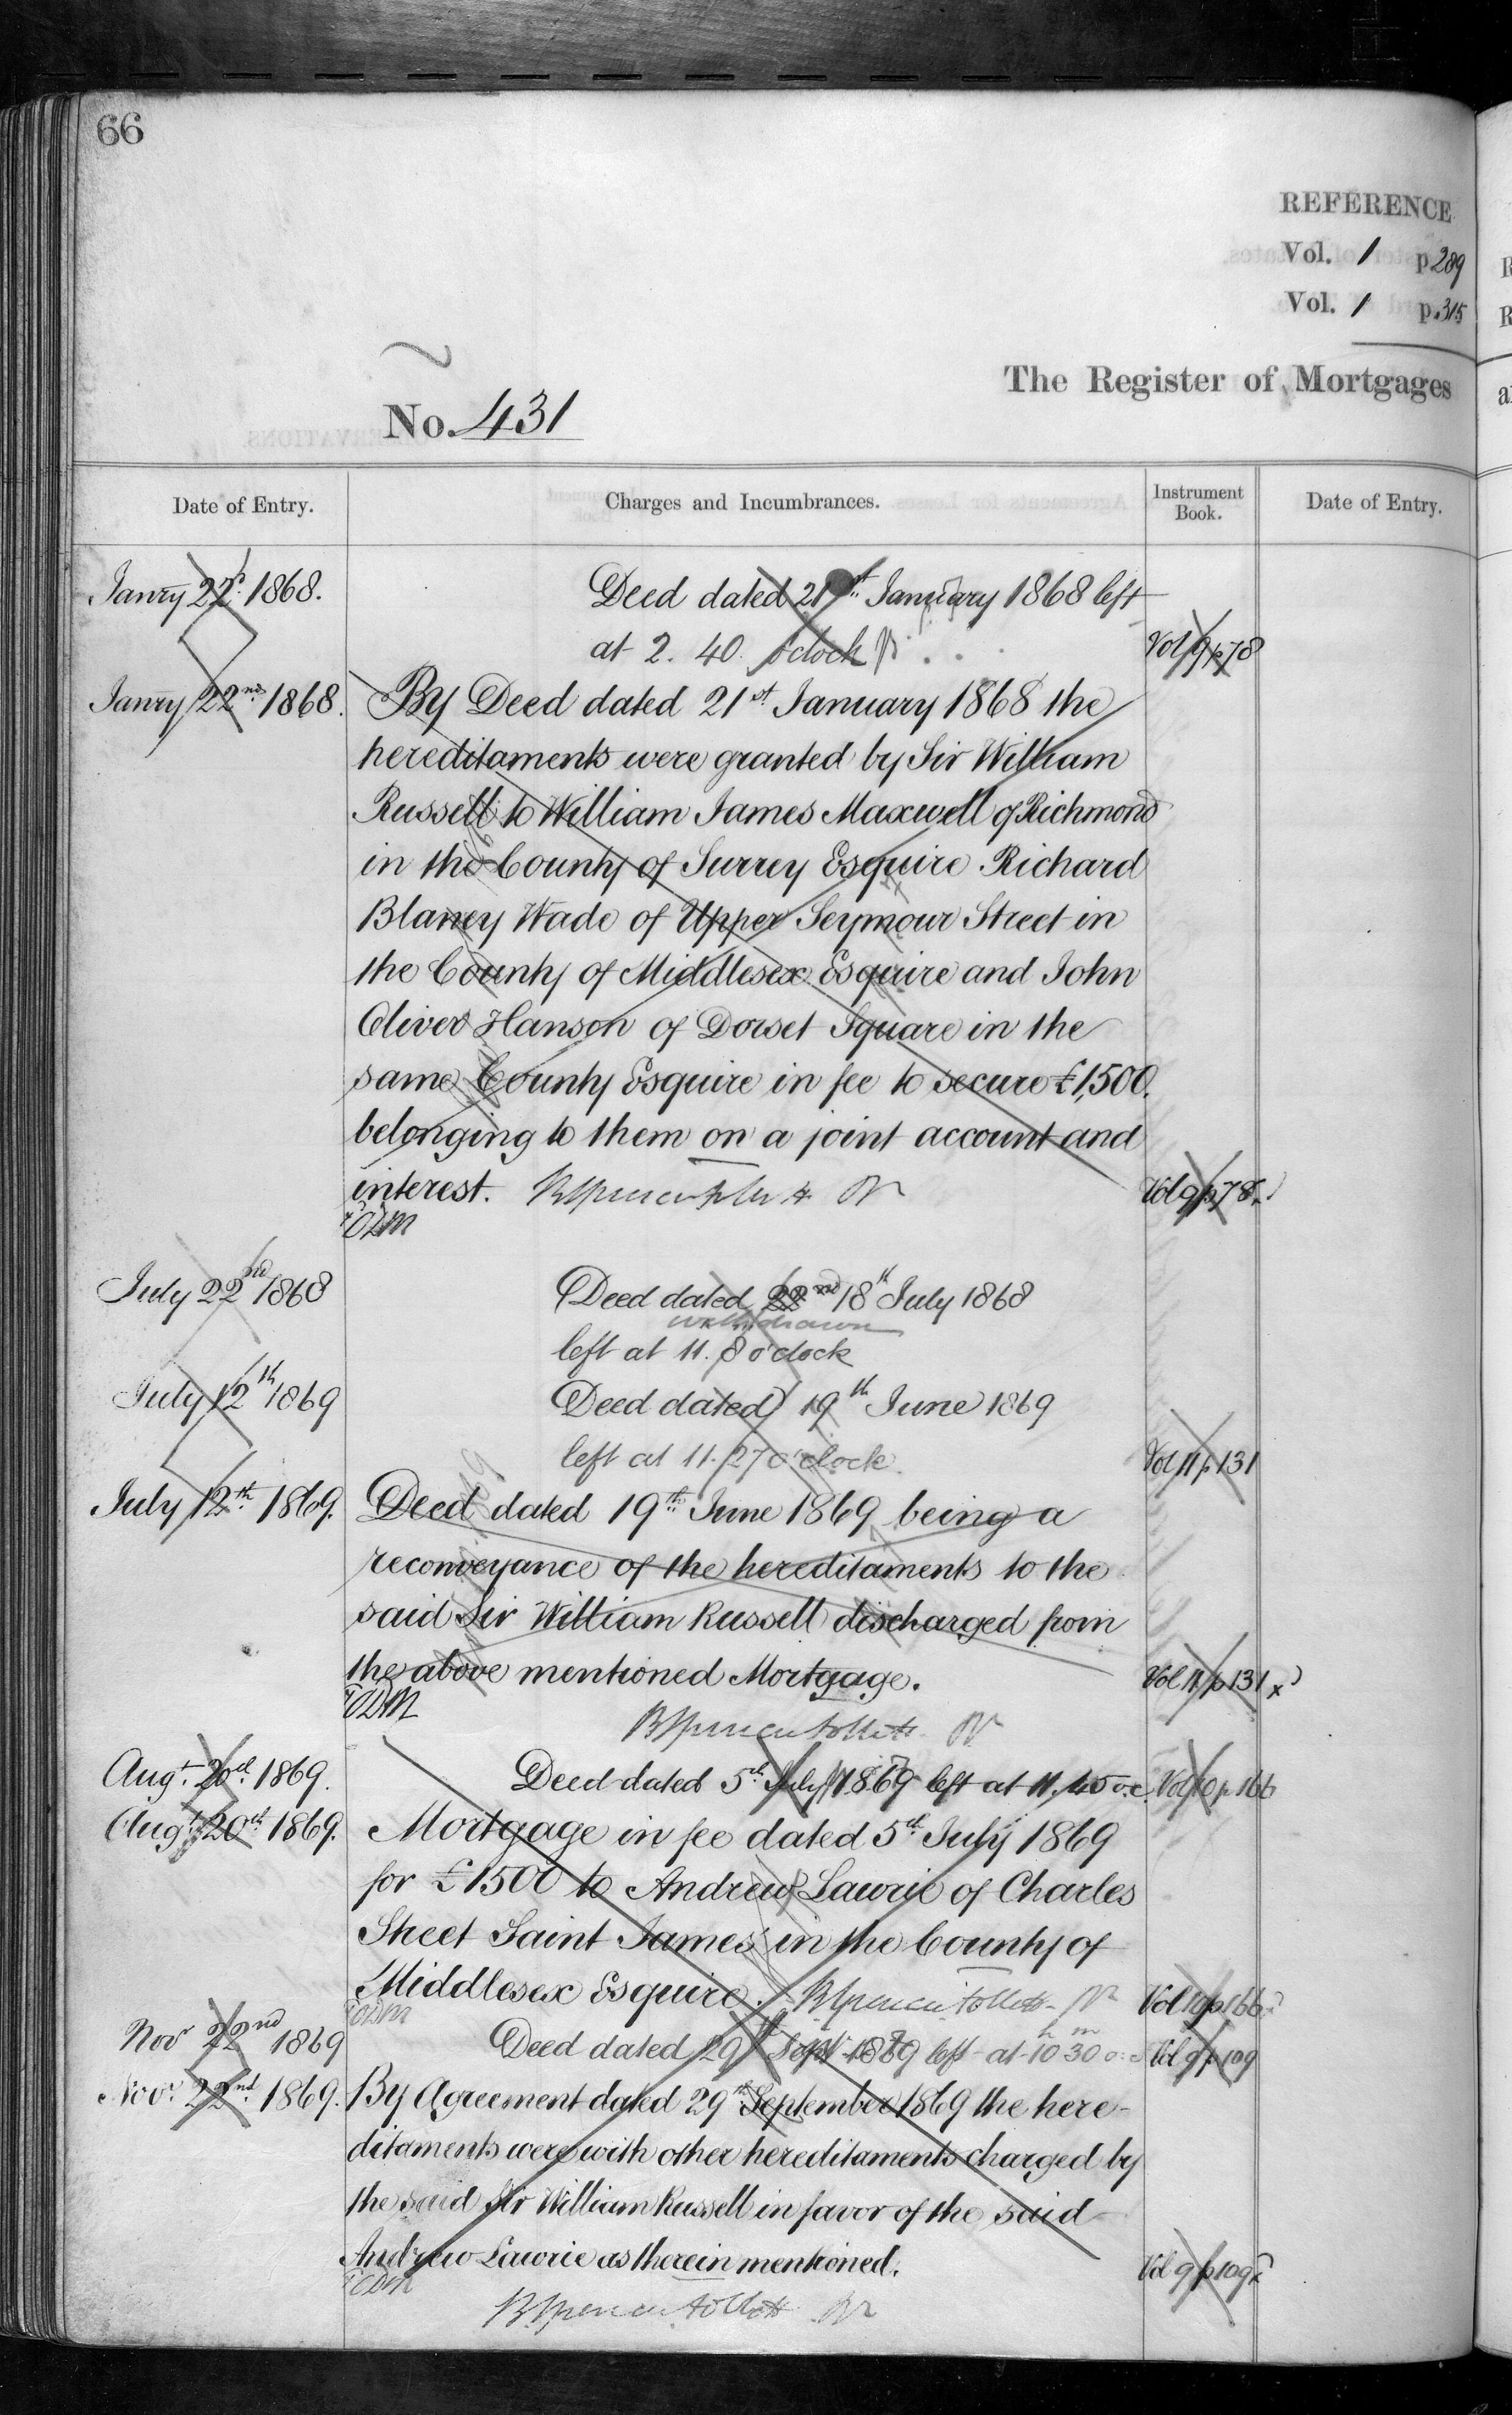 66
REFERENCE
Vol. 1 p 289
Vol. 1 p. 315
The Register of Mortgages
No. 431
Date of Entry.
Charges and Incumbrances.
Instrument Book.
Date of Entry.
Janry 22d. 1868.
Deed dated 21st January 1868 left
at 2. 40. o'clock
Vol 9 p 78
Janry 22nd 1868.
By Deed dated 21st January 1868 the
hereditaments were granted by Sir William
Russell to William James Maxwell of Richmond
in the County of Surrey Esquire Richard
Blaney Wade of Upper Seymour Street in
the County of Middlesex Esquire and John
Oliver Hanson of Dorset Square in the
same County Esquire in fee to secure £1,500.
belonging to them on a joint account and
interest.
Vol 9 p 78
July 22nd 1868
Deed dated 22nd 18th July 1868
withdrawn
left at 11. 8 o'clock
July 12th 1869
Deed dated 19th June 1869
left at 11. 27 o'clock.
Vol 11 p 131
July 12th 1869.
Deed dated 19th June 1869 being a
reconveyance of the hereditaments to the
said Sir William Russell discharged from
the above mentioned Mortgage.
Vol 11 p 131 x
Augt. 20th 1869.
Deed dated 5th July 1869 left at 11.45 o.c.
Vol 10 p 166
Augt. 20th 1869.
Mortgage in fee dated 5th July 1869
for £1500 to Andrew Lawrie of Charles
Street Saint James' in the County of
Middlesex Esquire.
Vol 10 p 166
Nov 22nd 1869
Deed dated 29th Sept 1869 left at 10h 30m o.c
Vol 9 p 109
Novr 22nd 1869.
By Agreement dated 29th September 1869 the here-
ditaments were with other hereditaments charged by
the said Sir William Russell in favor of the said
Andrew Lawrie as therein mentioned.
Vol 9 p 109 x